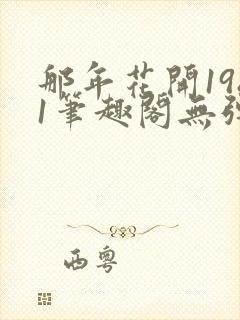 那年花開19
1筆趣閣無彈
西粵